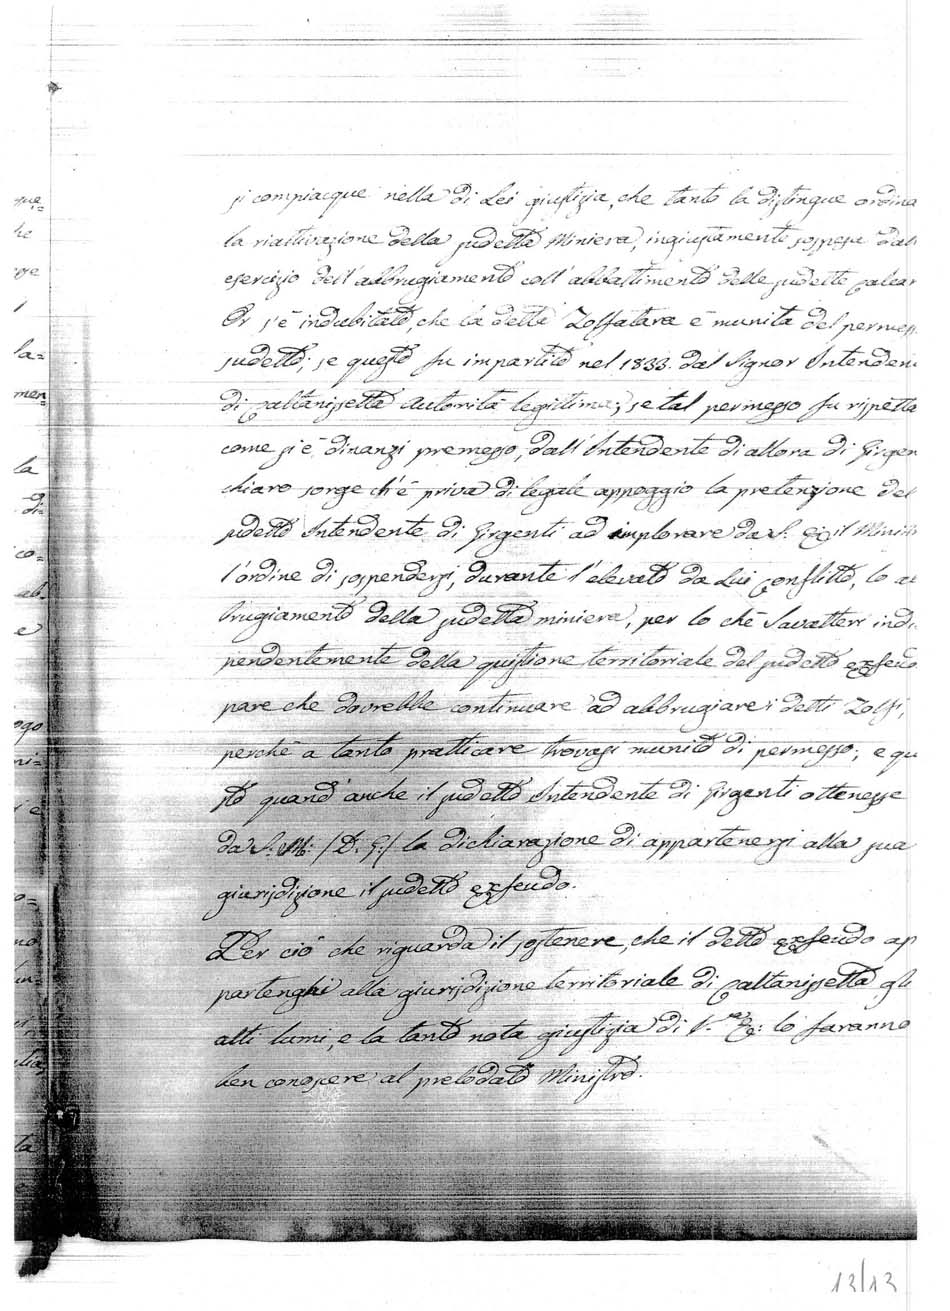 si compiacque nella di Lei giustizia, che tanto la distingue ordina
la riattivazione della sudetta Miniera, ingiustamente sospesa dall
esercizio dell'abbrugiamento coll'abbattimento delle sudette calcar
Or s'è indubitato, che la detta Zolfatara è munita del permess
sudetto; se questo fu impartito nel 1833. dal Signor Intenden
di Caltanissetta Autorità legittima; se tal permesso fu rispetta
come si è dinanzi premesso, dall'Intendente di allora di Girgen
chiaro sorge ch'è priva di legale appoggio la pretenzione del
sudetto Intendente di Girgenti ad implorare da S. E. il Minist
l'ordine di sospendersi, durante l'elevato da Lui conflitto, lo ab
brugiamento della sudetta miniera, per lo chè Savatteri indi
pendentemente della quistione territoriale del sudetto exfeudo
pare che dovrebbe continuare ad abbrugiare i detti Zolfi,
perchè a tanto pratticare trovasi munito di permesso; e que
sto quand'anche il sudetto Intendente di Girgenti ottenesse
da S. M. /D. G./ la dichiarazione di appartenersi alla sua
giurisdizione il sudetto exfeudo.
Per ciò che riguarda il sostenere, che il detto exfeudo ap
partenghi alla giurisdizione territoriale di Caltanissetta gli
alti lumi, e la tanto nota giustizia di V.ra E.: lo faranno
ben conoscere al prelodato Ministro.
12/13